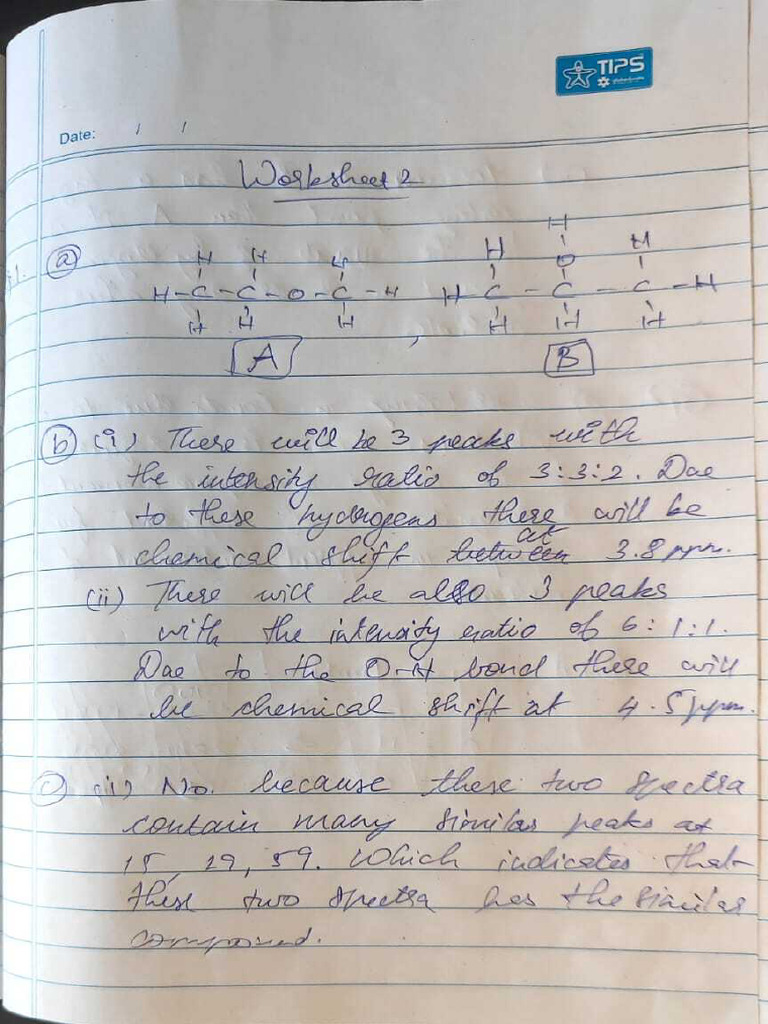 TIPS
Date: / /
Worksheet 2
a
H H H
H-C-C-O-C-H
H H H
A
,
H
H O H
H-C-C-C-H
H H H
B
b (i) There will be 3 peaks with
the intensity ratio of 3:3:2. Due
to these hydrogens there will be
chemical shift between at 3.8 ppm.
(ii) There will be also 3 peaks
with the intensity ratio of 6:1:1.
Due to the O-H bond there will
be chemical shift at 4.5 ppm.
c (ii) No. because these two spectra
contain many similar peaks at
15, 29, 59. Which indicates that
these two spectra has the similar
compound.